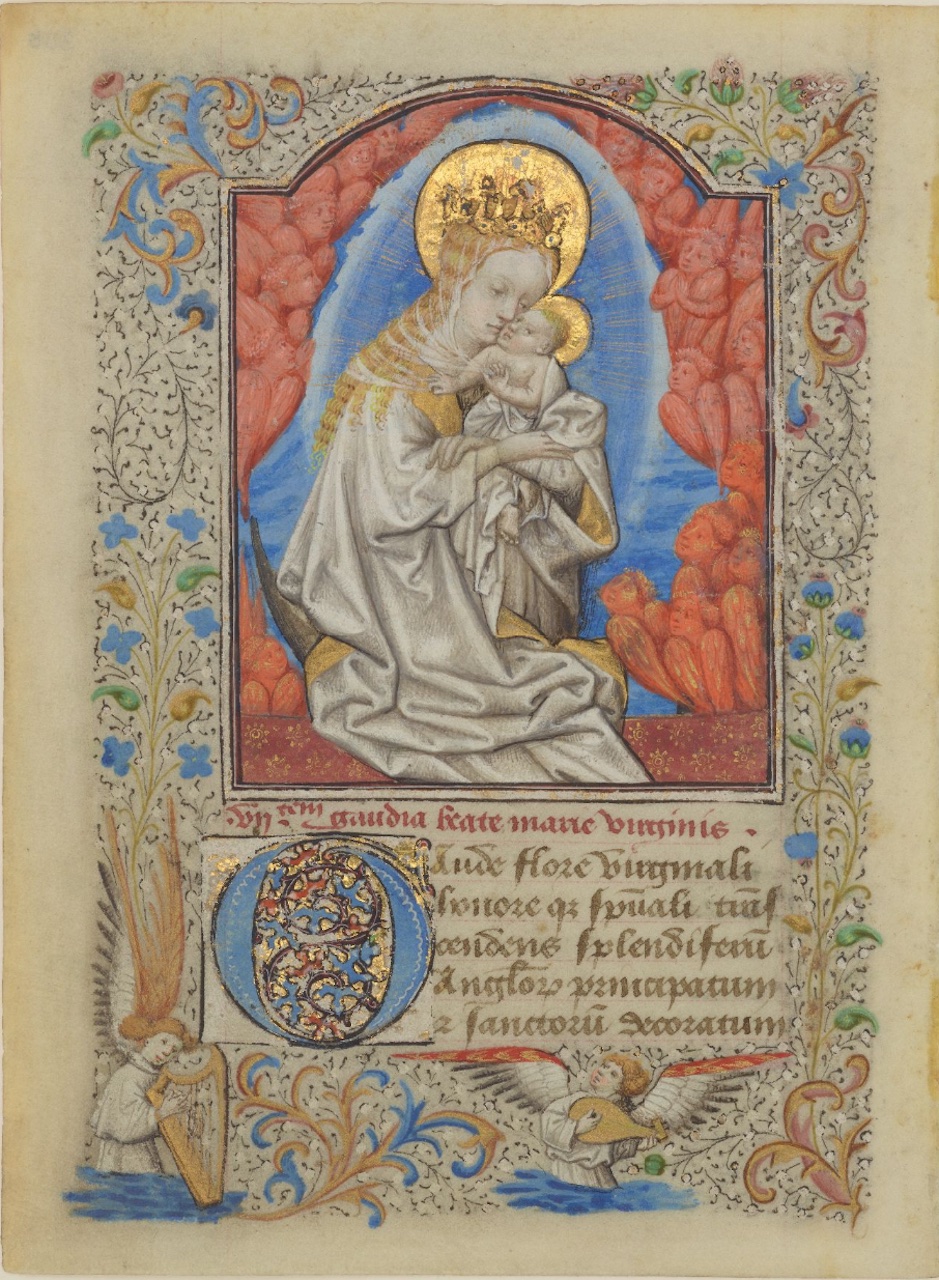 vij tem gaudia beate marie virginis .
Gaude flore virginali
honore qz spuali tras
cendens splendiferu
Anglor principatum
z sanctoru decoratum